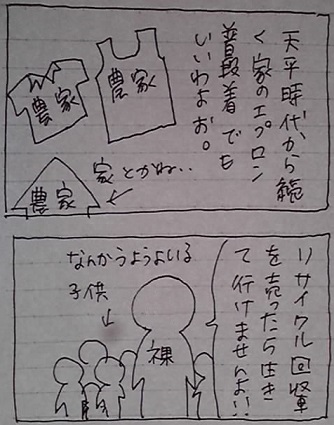 天平時代から続
く家のエプロン
普段着でも
いいわよお。
農家
農家
家とかね‥
農家
リサイクル回収車
を売ったら生き
て行けませんよ!!
なんかうようよいる
子供
裸